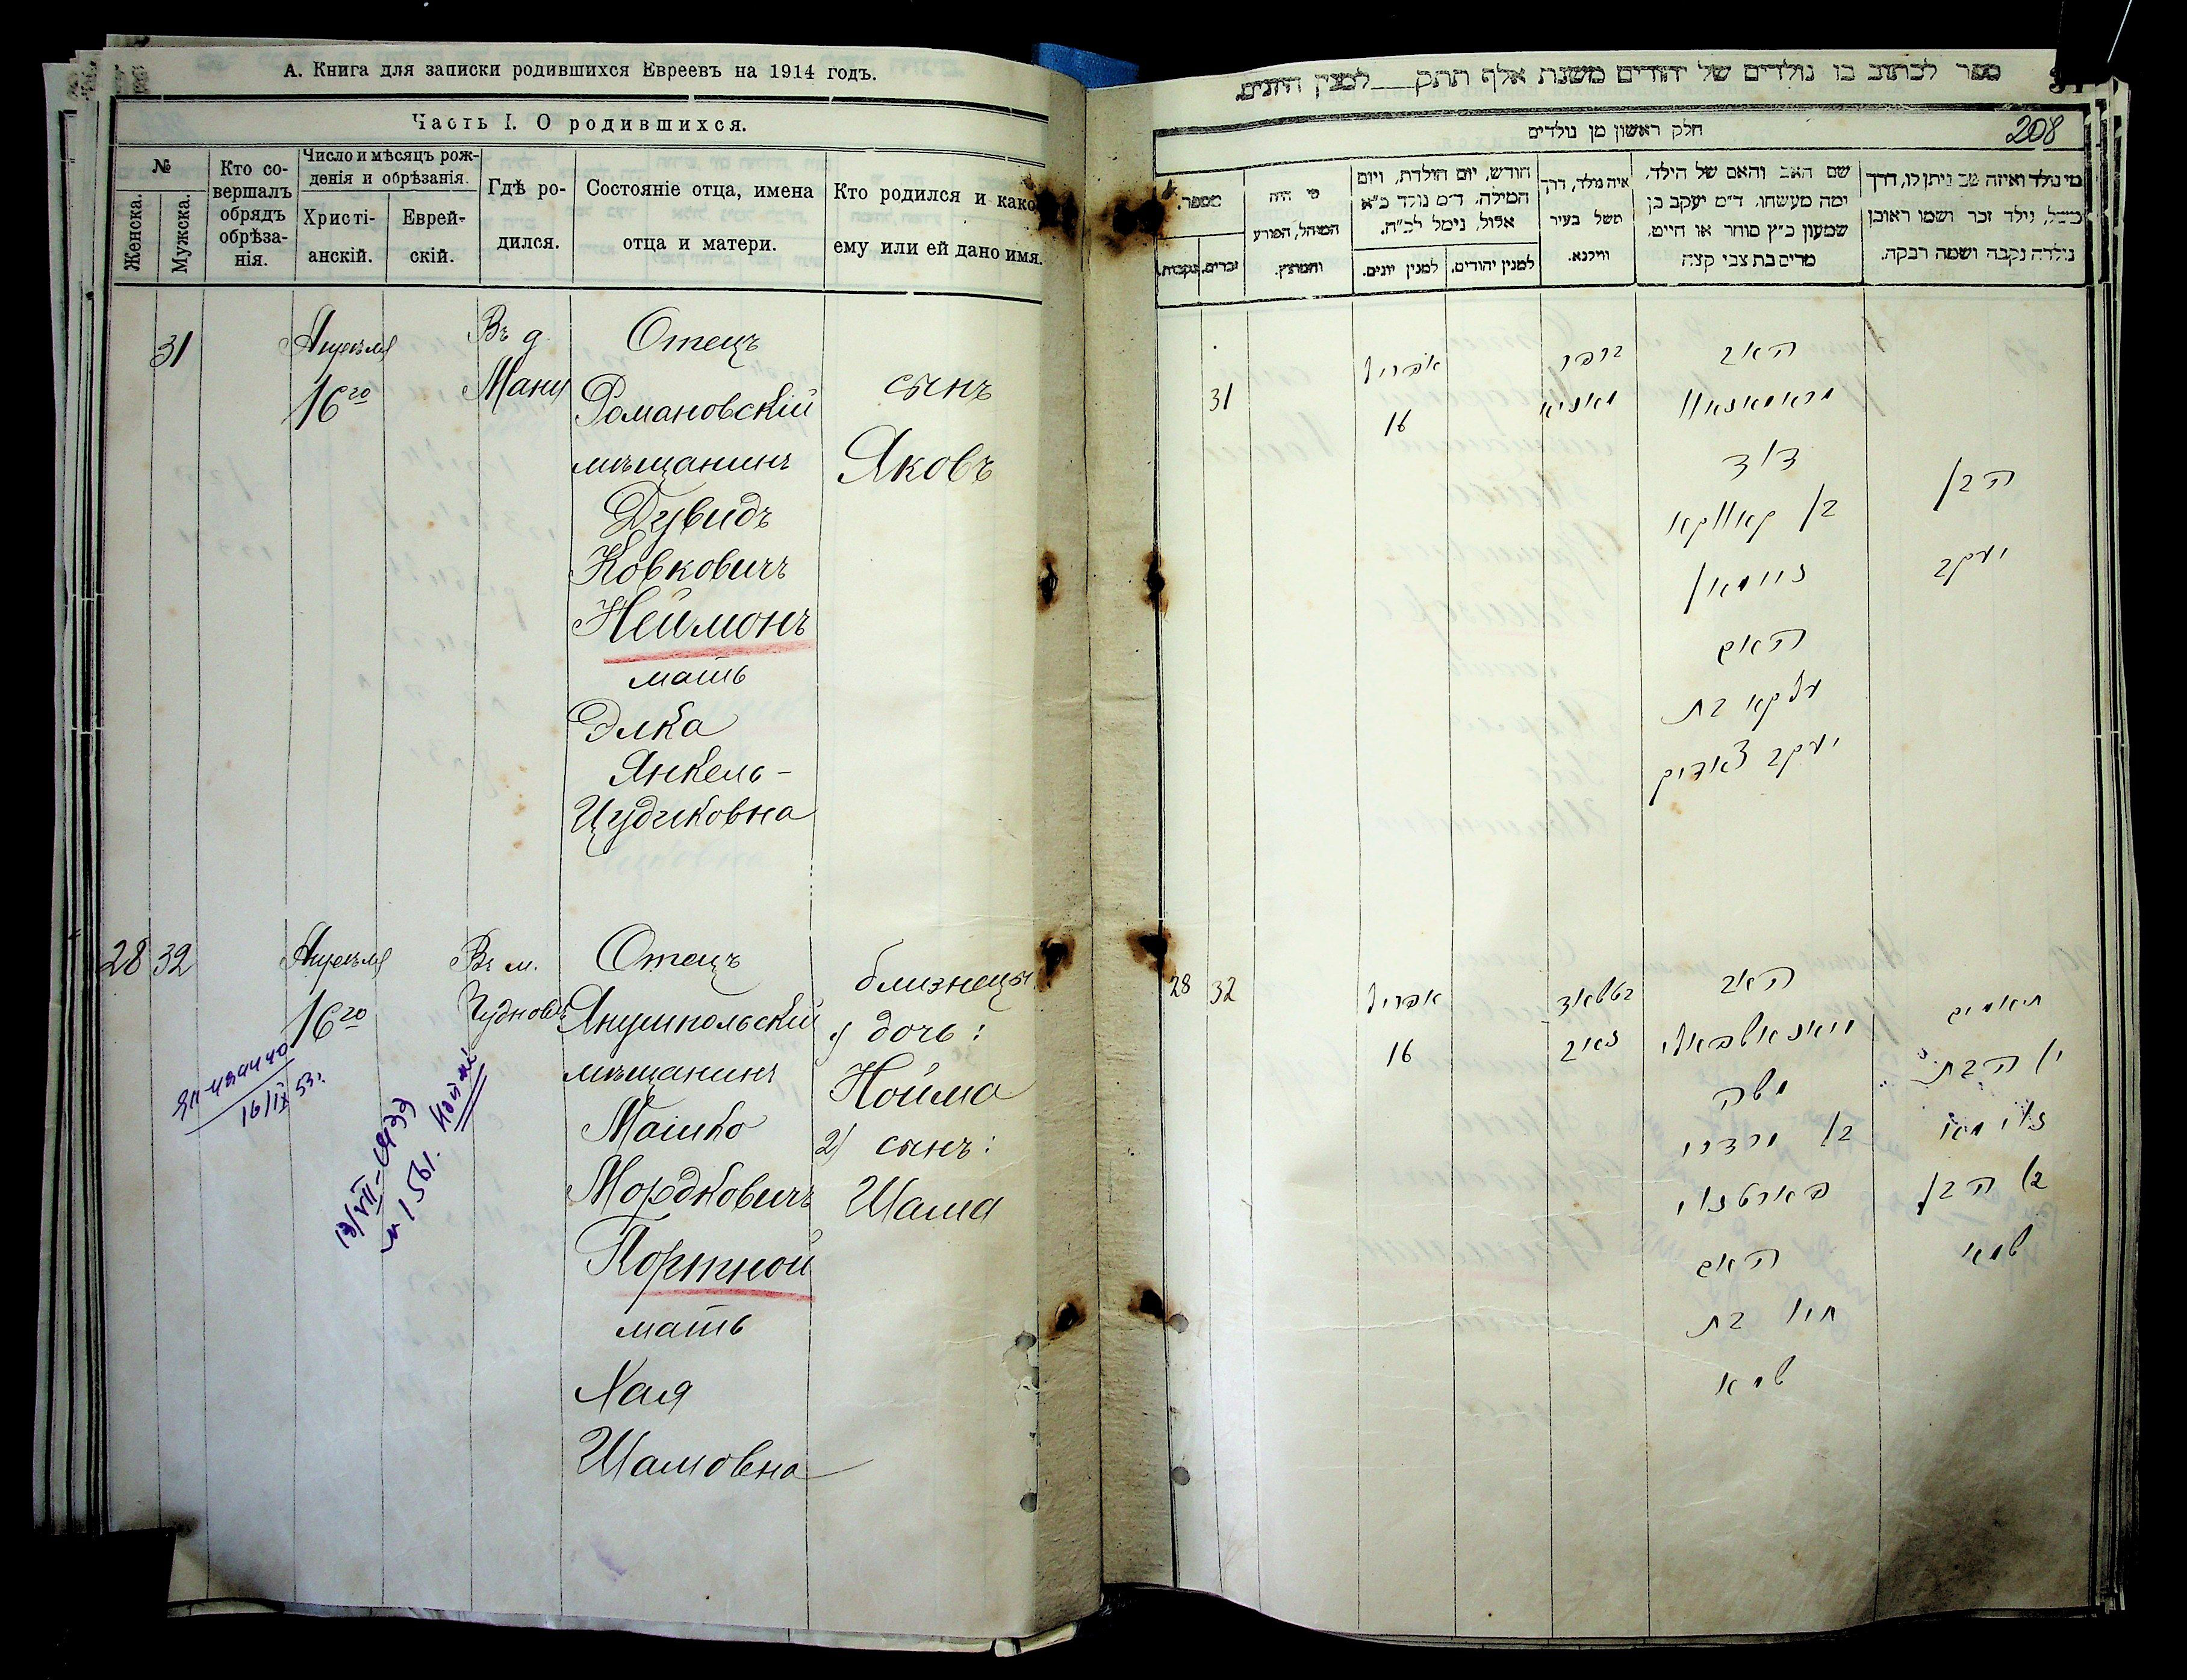 А. Книга для записки родившихся Евреевъ на 1914 годъ.
Часть I. О родившихся.
№
Женска.
Мужска.
Кто со-
вершалъ
обрядъ
обрѣза-
нія.
Число и мѣсяцъ рож-
денія и обрѣзанія.
Христі-
анскій.
Еврей-
скій.
Гдѣ ро-
дился.
Состояніе отца, имена
отца и матери.
Кто родился и како
ему или ей дано имя.
31
Апрѣля
16го
Въ д.
Мани
Отецъ
Романовскій
мѣщанинъ
Дувидъ
Ковковичъ
Неймонъ
мать
Элка
Янкель-
Цудиковна
сынъ
Яковъ
28 32
Апрѣля
16го
Въ м.
Чудновѣ
Отецъ
Янушпольскій
мѣщанинъ
Мошко
Мордковичъ
Портной
мать
Хая
Шамовна
близнецы
1) дочь:
Нойма
2) сынъ:
Шама
16/IX 53г.
ספר לכתוב בו נולדים של יהודים משנת אלף תתק לסצין היונים
חלק ראשון מן נולדים
208
מספר.
זכרים.
נקבות.
מי היה
המוהל, הפורע
והמוצץ.
חודש, יום הולדת, ויום
המילה. ד״מ נולד כ״א
אלול, נימל לכ״ח.
למנין יונים.
למנין יהודים.
איה נולד, דרך
משל בעיר
ווילנא.
שם האב והאם של הילד,
ומה מעשהו. ד״מ יעקב בן
שמעון כ״ץ סוחר או חייט,
מרים בת צבי קצה
מי נולד ואיזה שם ניתן לו, דרך
משל, נולד זכר ושמו ראובן
נולדה נקבה ושמה רבקה.
31
אפריל
16
האב
דוד
בן קאווקא
נוימאן
האם
עלקא בת
יעקב צאדיק
הבן
יעקב
28 32
אפריל
16
האב
משה
בן מרדכי
האם
חיו בת
שמא
תאומים
הבת
הבן
שמאי